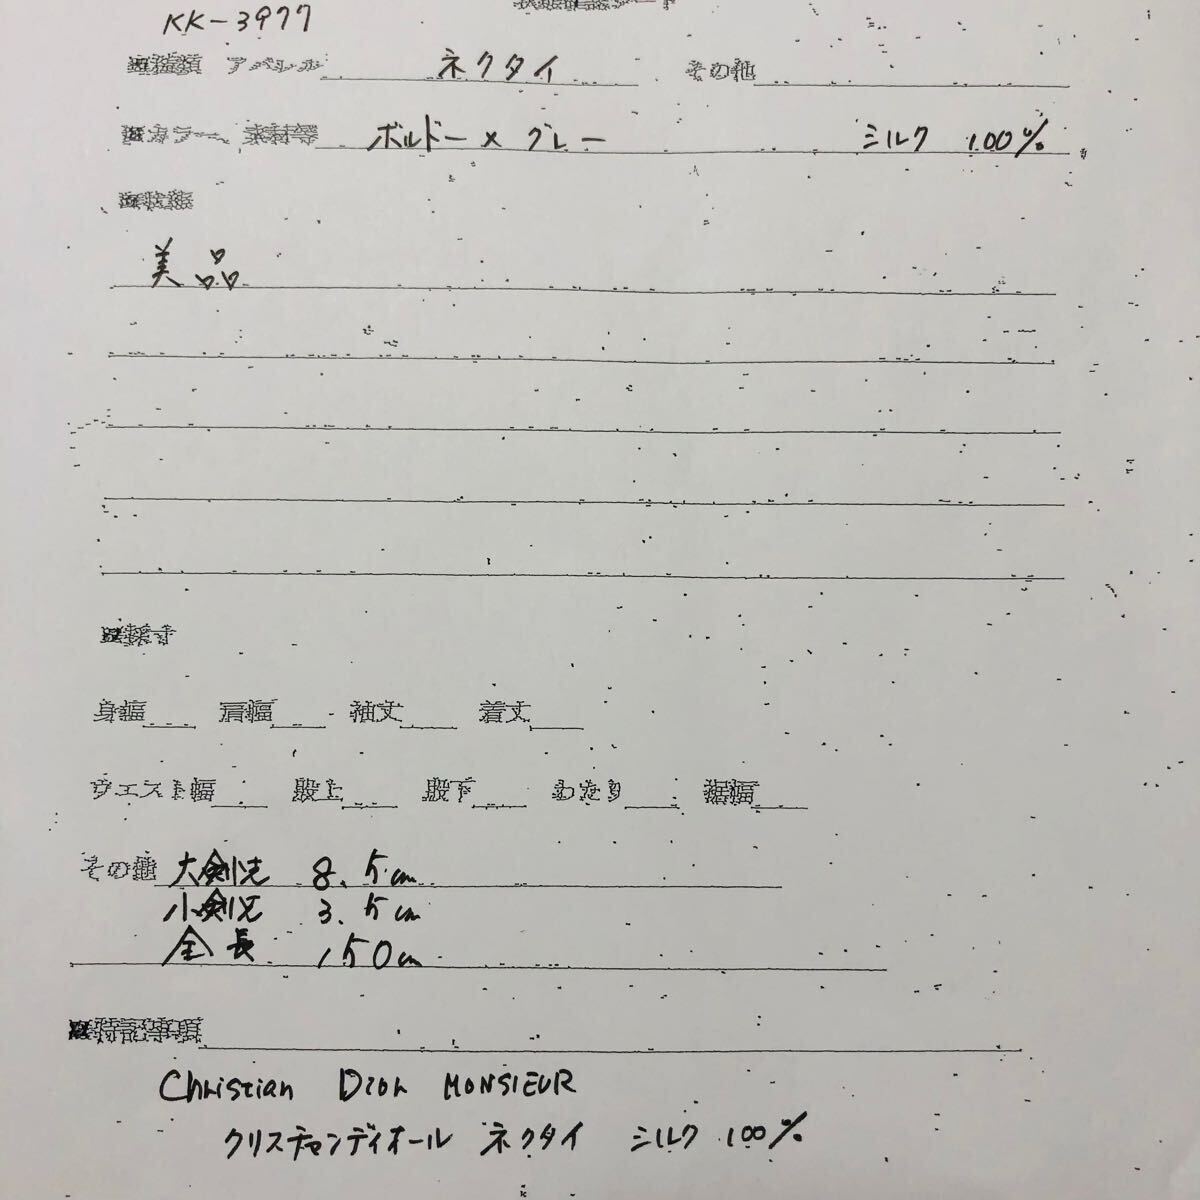 KK-3977
■種類 アパレル ネクタイ その他
■カラー、素材等 ボルドー×グレー シルク 100%
■状態
美品
■採寸
身幅 肩幅 袖丈 着丈
ウエスト幅 股上 股下 わたり 裾幅
その他 大剣先 8.5cm
小剣先 3.5cm
全長 150cm
■特記事項
Christian Dior MONSIEUR
クリスチャンディオール ネクタイ シルク 100%